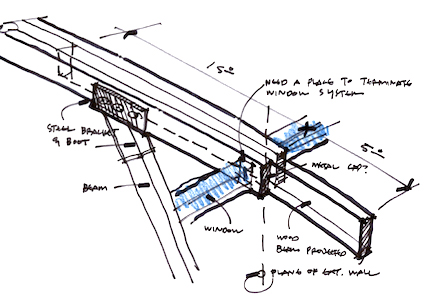 15'-0"
NEED A PLACE TO TERMINATE
WINDOW SYSTEM
5'-0"
STEEL BRACKET
& BOOT
METAL CAP?
BEAM
WINDOW
WOOD
BEAM PROTECTED
PLANE OF EXT. WALL